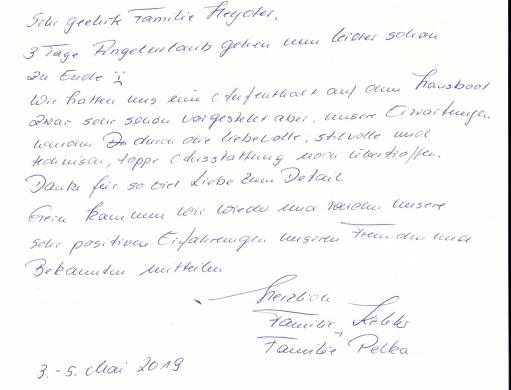 Sehr geehrte Familie Heyder,
3 Tage Angelurlaub gehen nun leider schon
zu Ende :(
Wir hatten uns ein Aufenthalt auf dem Hausboot
zwar sehr schön vorgestellt aber, unsere Erwartungen
wurden durch die liebevolle, stilvolle und
technisch, toppe Ausstattung noch übertroffen.
Danke für so viel Liebe zum Detail
Gern kommen wir wieder und werden unsere
sehr positiven Erfahrungen unseren Freunden und
Bekannten mitteilen
Herzlich
Familie
Familie Pelka
3.-5. Mai 2019